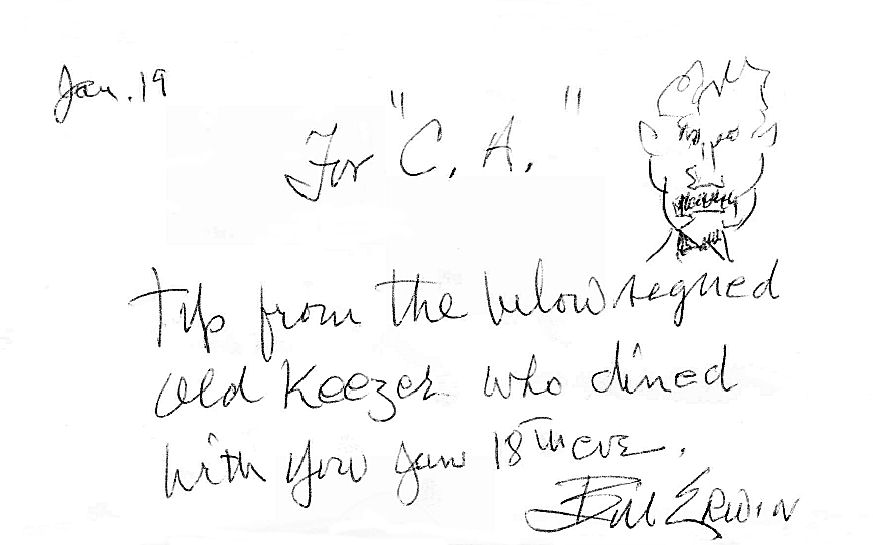 Jan. 19
For "C. A."
Tip from the belowsigned
old Keezer who dined
with you Jan 18TH eve.
Bill Erwin